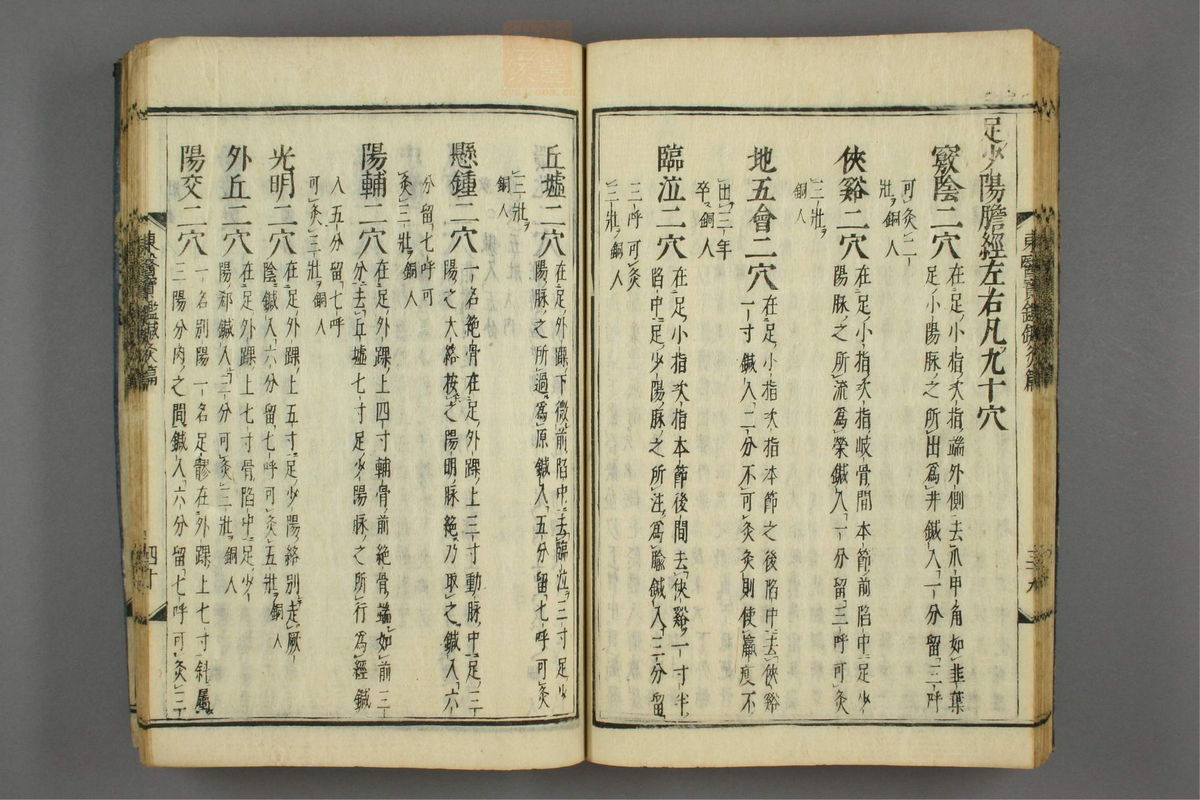 足少陽膽經左右凡九十穴
竅陰二穴在足小指次指端外側去爪甲角如韭葉
足小陽脉之所出爲井鍼入一分留三呼
可灸二
壯銅人
俠谿二穴在足小指次指岐骨間本節前陷中足少
陽脉之所流爲滎鍼入一分留三呼可灸
三壯
銅人
地五會二穴在足小指次指本節之後陷中去俠谿
一寸鍼入二分不可灸灸則使羸瘦不
出三年
卒銅人
臨泣二穴在足小指次指本節後間去俠谿一寸半
陷中足少陽脉之所注爲腧鍼入三分留
三呼可灸
三壯銅人
東醫寶鑑鍼灸篇
三九
丘墟二穴在足外踝下微前陷中去臨泣三寸足少
陽脉之所過爲原鍼入五分留七呼可灸
三壯
銅人
懸鍾二穴一名絶骨在足外踝上三寸動脉中足三
陽之大絡按之陽明脉絶乃取之鍼入六
分留七呼可
灸三壯銅人
陽輔二穴在足外踝上四寸輔骨前絶骨端如前三
分去丘墟七寸足少陽脉之所行爲經鍼
入五分留七呼
可灸三壯銅人
光明二穴在足外踝上五寸足少陽絡別走厥
陰鍼入六分留七呼可灸五壯銅人
外丘二穴在足外踝上七寸骨陷中足少
陽郄鍼入三分可灸三壯銅人
陽交二穴一名別陽一名足髎在外踝上七寸斜屬
三陽分肉之間鍼入六分留七呼可灸三
東醫寶鑑鍼灸篇
四十